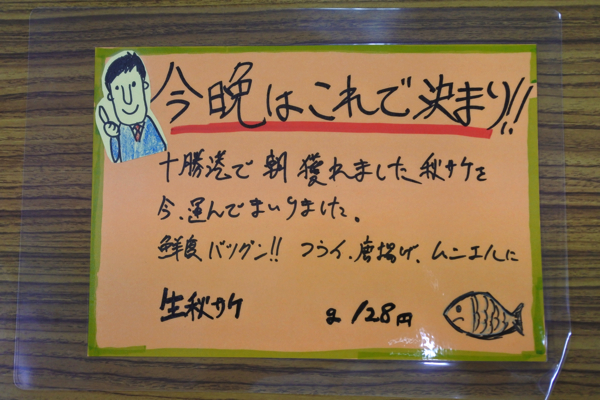 今晩はこれで決まり!!
十勝港で朝獲れました秋サケを
今、運んでまいりました。
鮮度バツグン!! フライ、唐揚げ、ムニエルに
生秋サケ g 128円